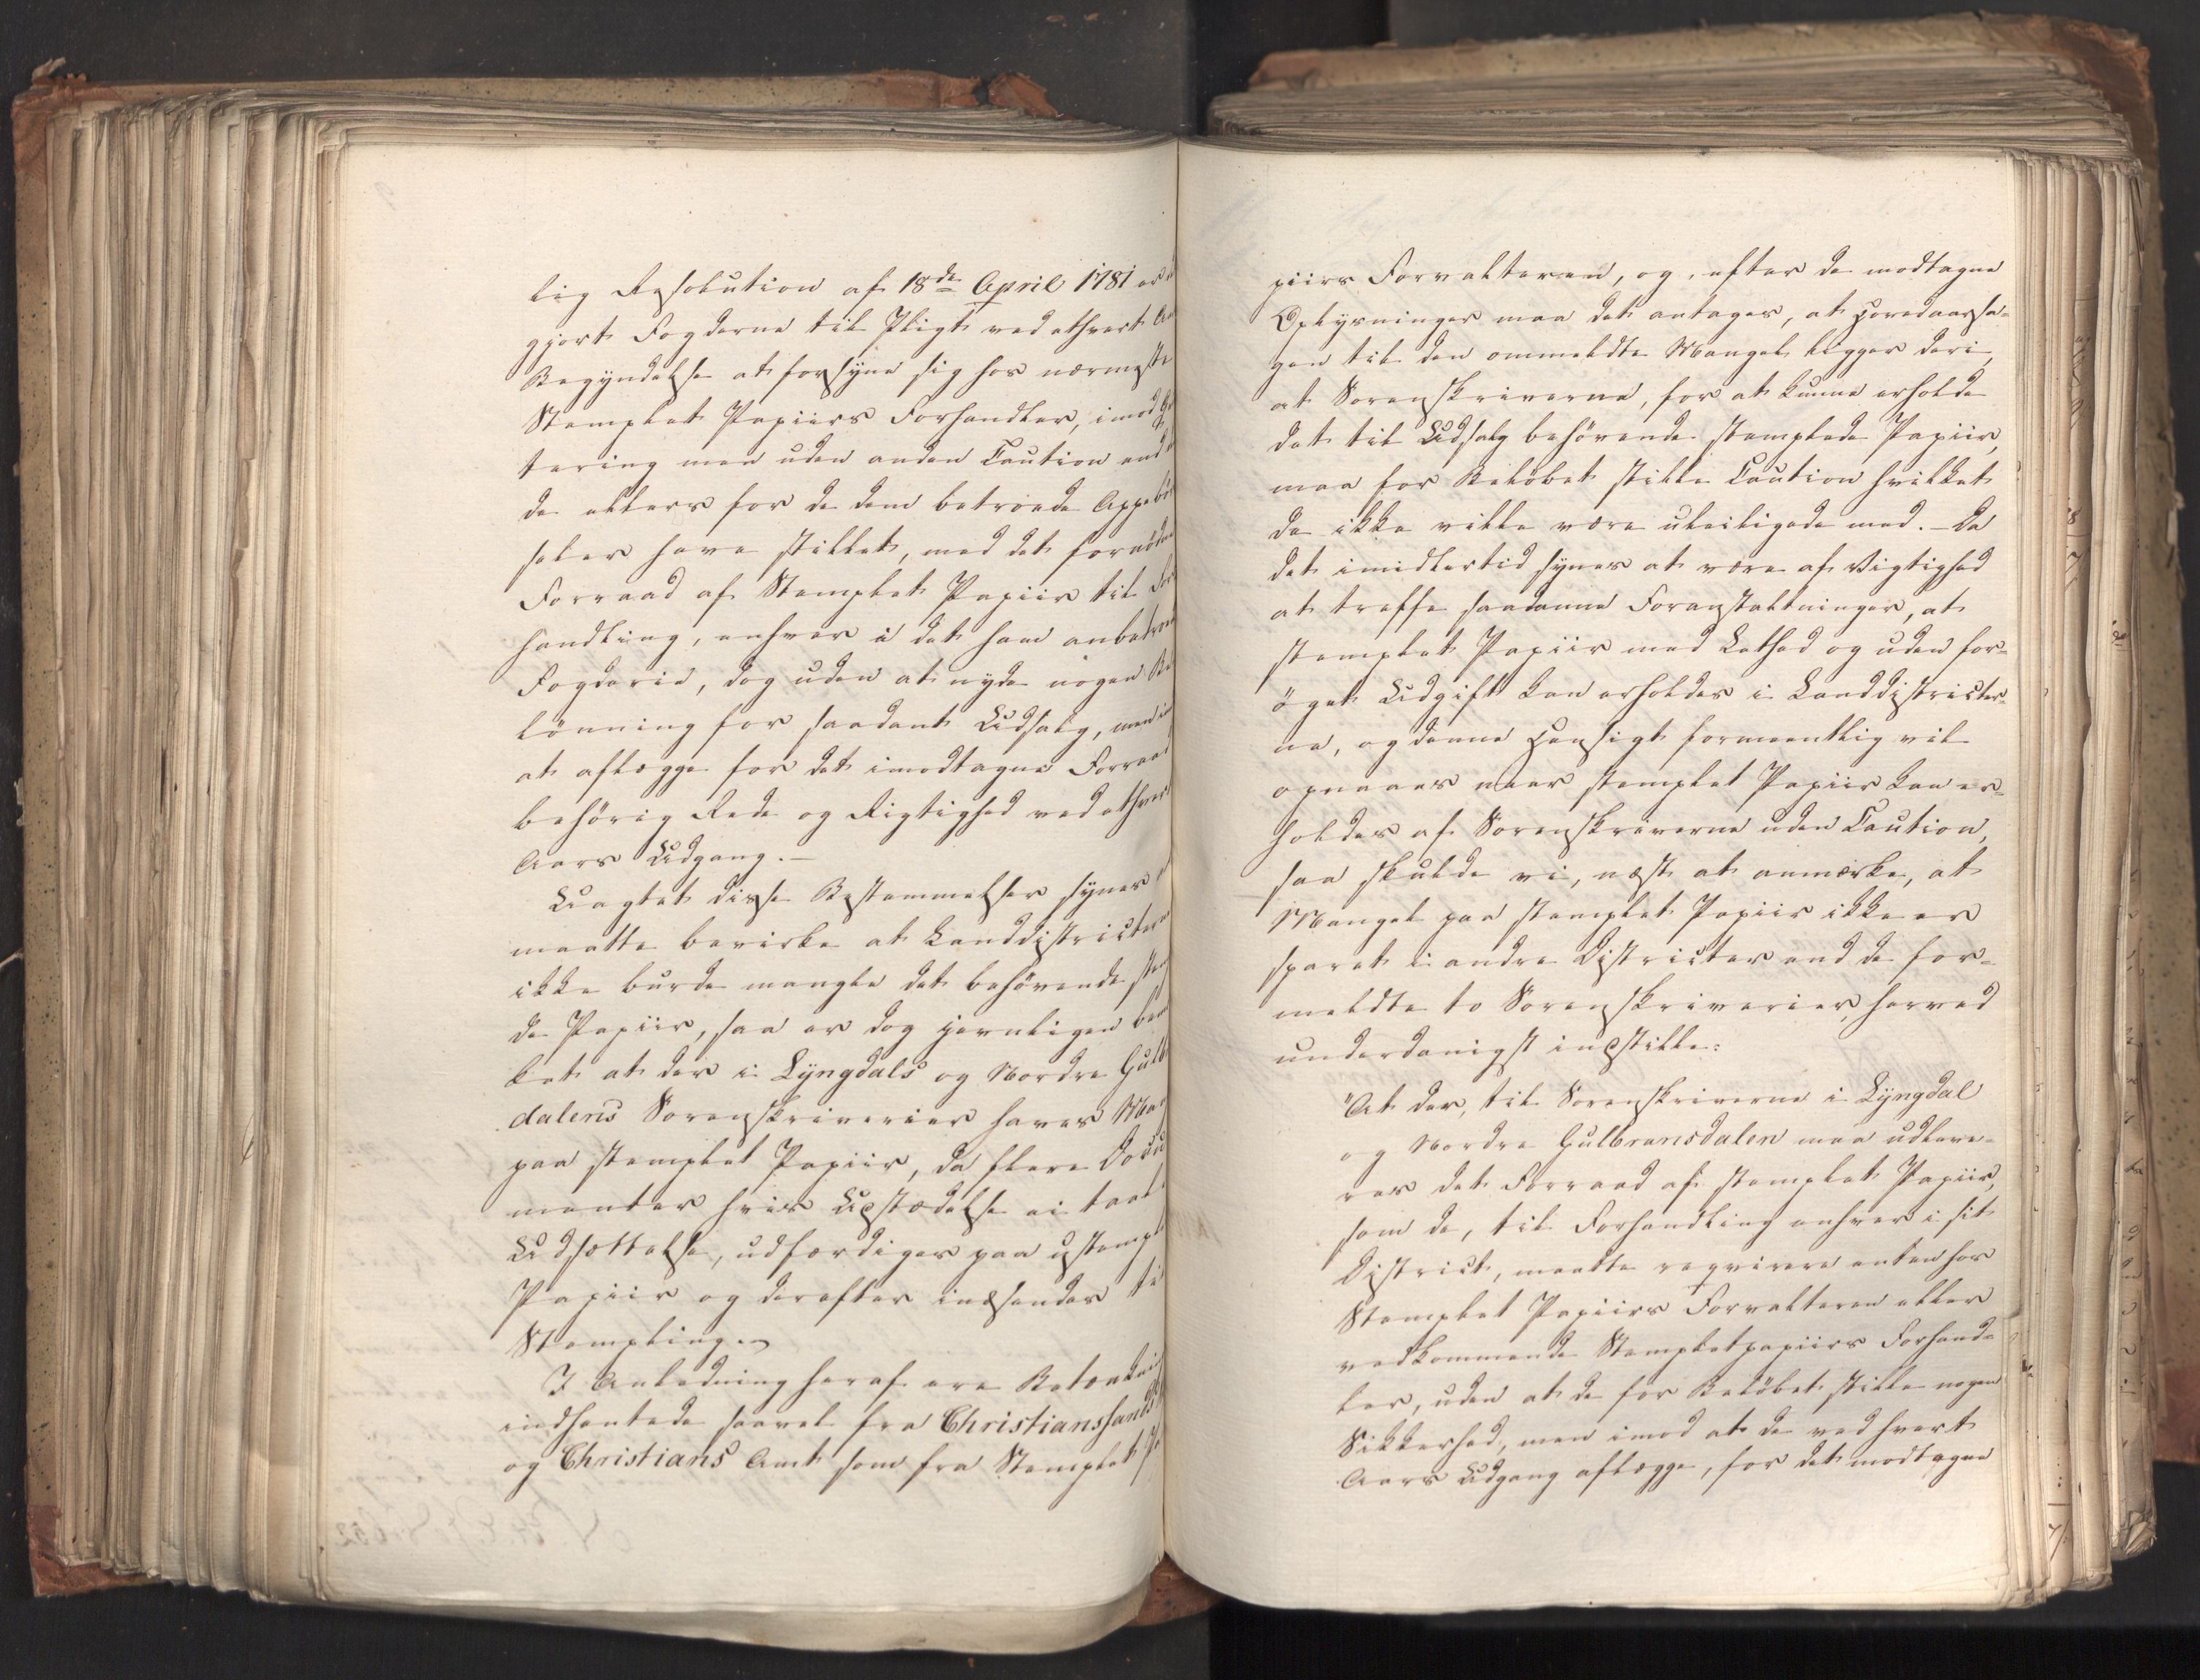 lig Resolution af 18de April 1781 er
gjort Fogderne til Pligt ved ethvert
Begyndelse at forsyne sig hos nærmeste
Stemplet Papiirs Forhandler, imod
tering men uden anden Caution end
de ellers for de dem betroede Oppebør
seler have stillet, med det fornødne
Forraad af Stemplet Papiir til For
handling, enhver i det ham anbetroede
Fogderie, dog uden at nyde nogen Be
lønning for saadant Udsalg, men
at aflægge for det imodtagne Forraad
behörig Rede og Rigtighed ved ethvert
Aars Udgang.-
Uagtet disse Bestemmelser synes
maatte bevirke at Landdistricterne
ikke burde mangle det behövende
de Papiir, saa er dog jevnligen
ket at der i Lyngdals og Nordre Gulb
dalens Sorenskriverier haves
paa stemplet Papiir, da flere Docu
menter hvis Udstædelse ei taal
Udsættelse, udfærdiges paa ustempl
Papiir og derefter indsendes til
Stempling.
I Anledning heraf ere Betænkn
indhentede saavel fra Christianssands
og Christians Amt som fra Stemplet
piirs Forvalteren, og, efter de modtagne
Oplysninger maa det antages, at Hovedaarsa-
gen til den ommeldte Mangel ligger deri
at Sorenskriverne, for at kunne erholde
det til Udsalg behövende stemplede Papiir,
maa for Belöbet stille Caution hvilket
de ikke ville være uleiligede med. - Da
det imidlertid synes at være af Vigtighed
at træffe saadanne Foranstaltninger, at
stemplet Papiir med Lethed og uden for-
öget Udgift kan erholdes i Landdistricter-
ne, og denne Hensigt formeentlig vil
opnaaes naar stemplet Papiir kan er-
holdes af Sorenskriverne uden Caution,
saa skulde vi, næst at anmærke, at
Mangel paa stemplet Papiir ikke er
sparet i andre Districter end de for-
meldte to Sorenskriverier, herved
underdanigst indstille:
"At der, til Sorenskriverne i Lyngdal
og Nordre Gulbransdalen maa udleve-
res det Forraad af stemplet Papiir,
som de, til Forhandling enhver i sit
District, maatte reqvirere enten hos
Stemplet Papiirs Forvalteren eller
vedkommende Stempletpapiirs Forhand-
ler, uden at de for Belöbet stille nogen
Sikkerhed, men imod at de ved hvert
Aars Udgang aflægge, for det modtagne